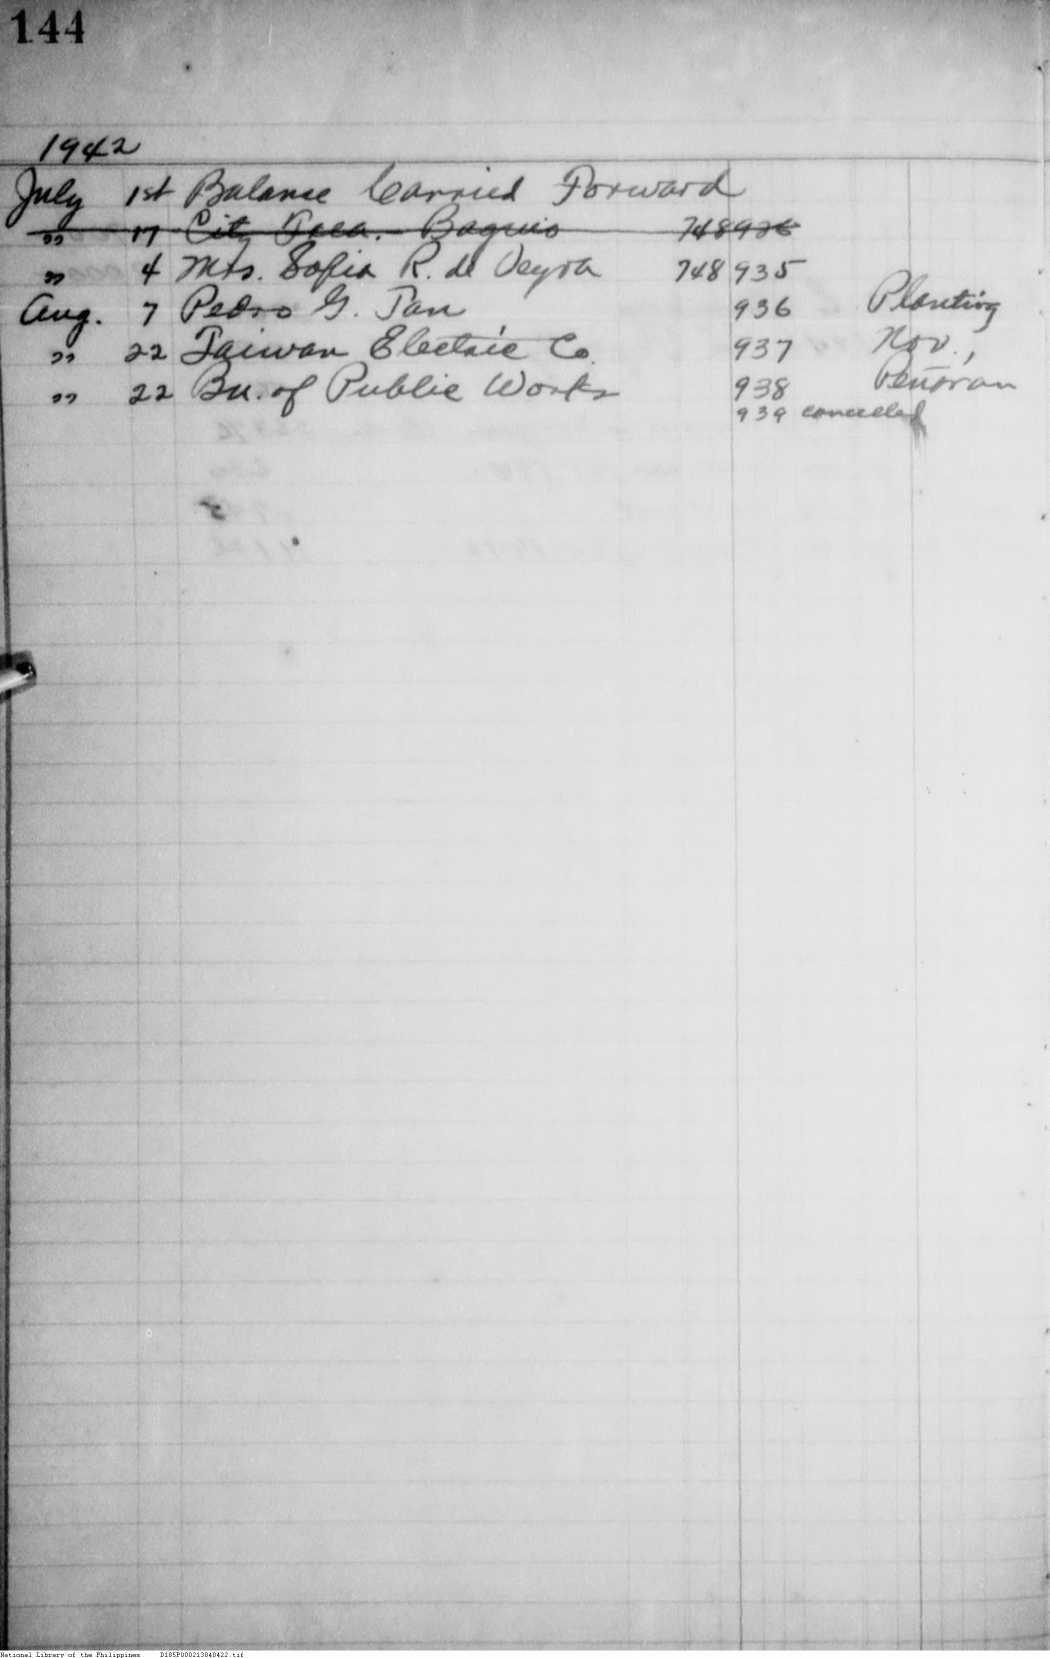 144
1942
July 1st Balance Carried Forward
" 17 City Trea. - Baguio 748 936
" 4 Mrs. Sofia R. de Veyra 748 935
Aug. 7 Pedro G. Tan 936 Planting
" 22 Taiwan Electric Co. 937 Nov.,
" 22 Bu. of Public Works 938
939 cancelled
National Library of the Philippines D185P000213040422.tif